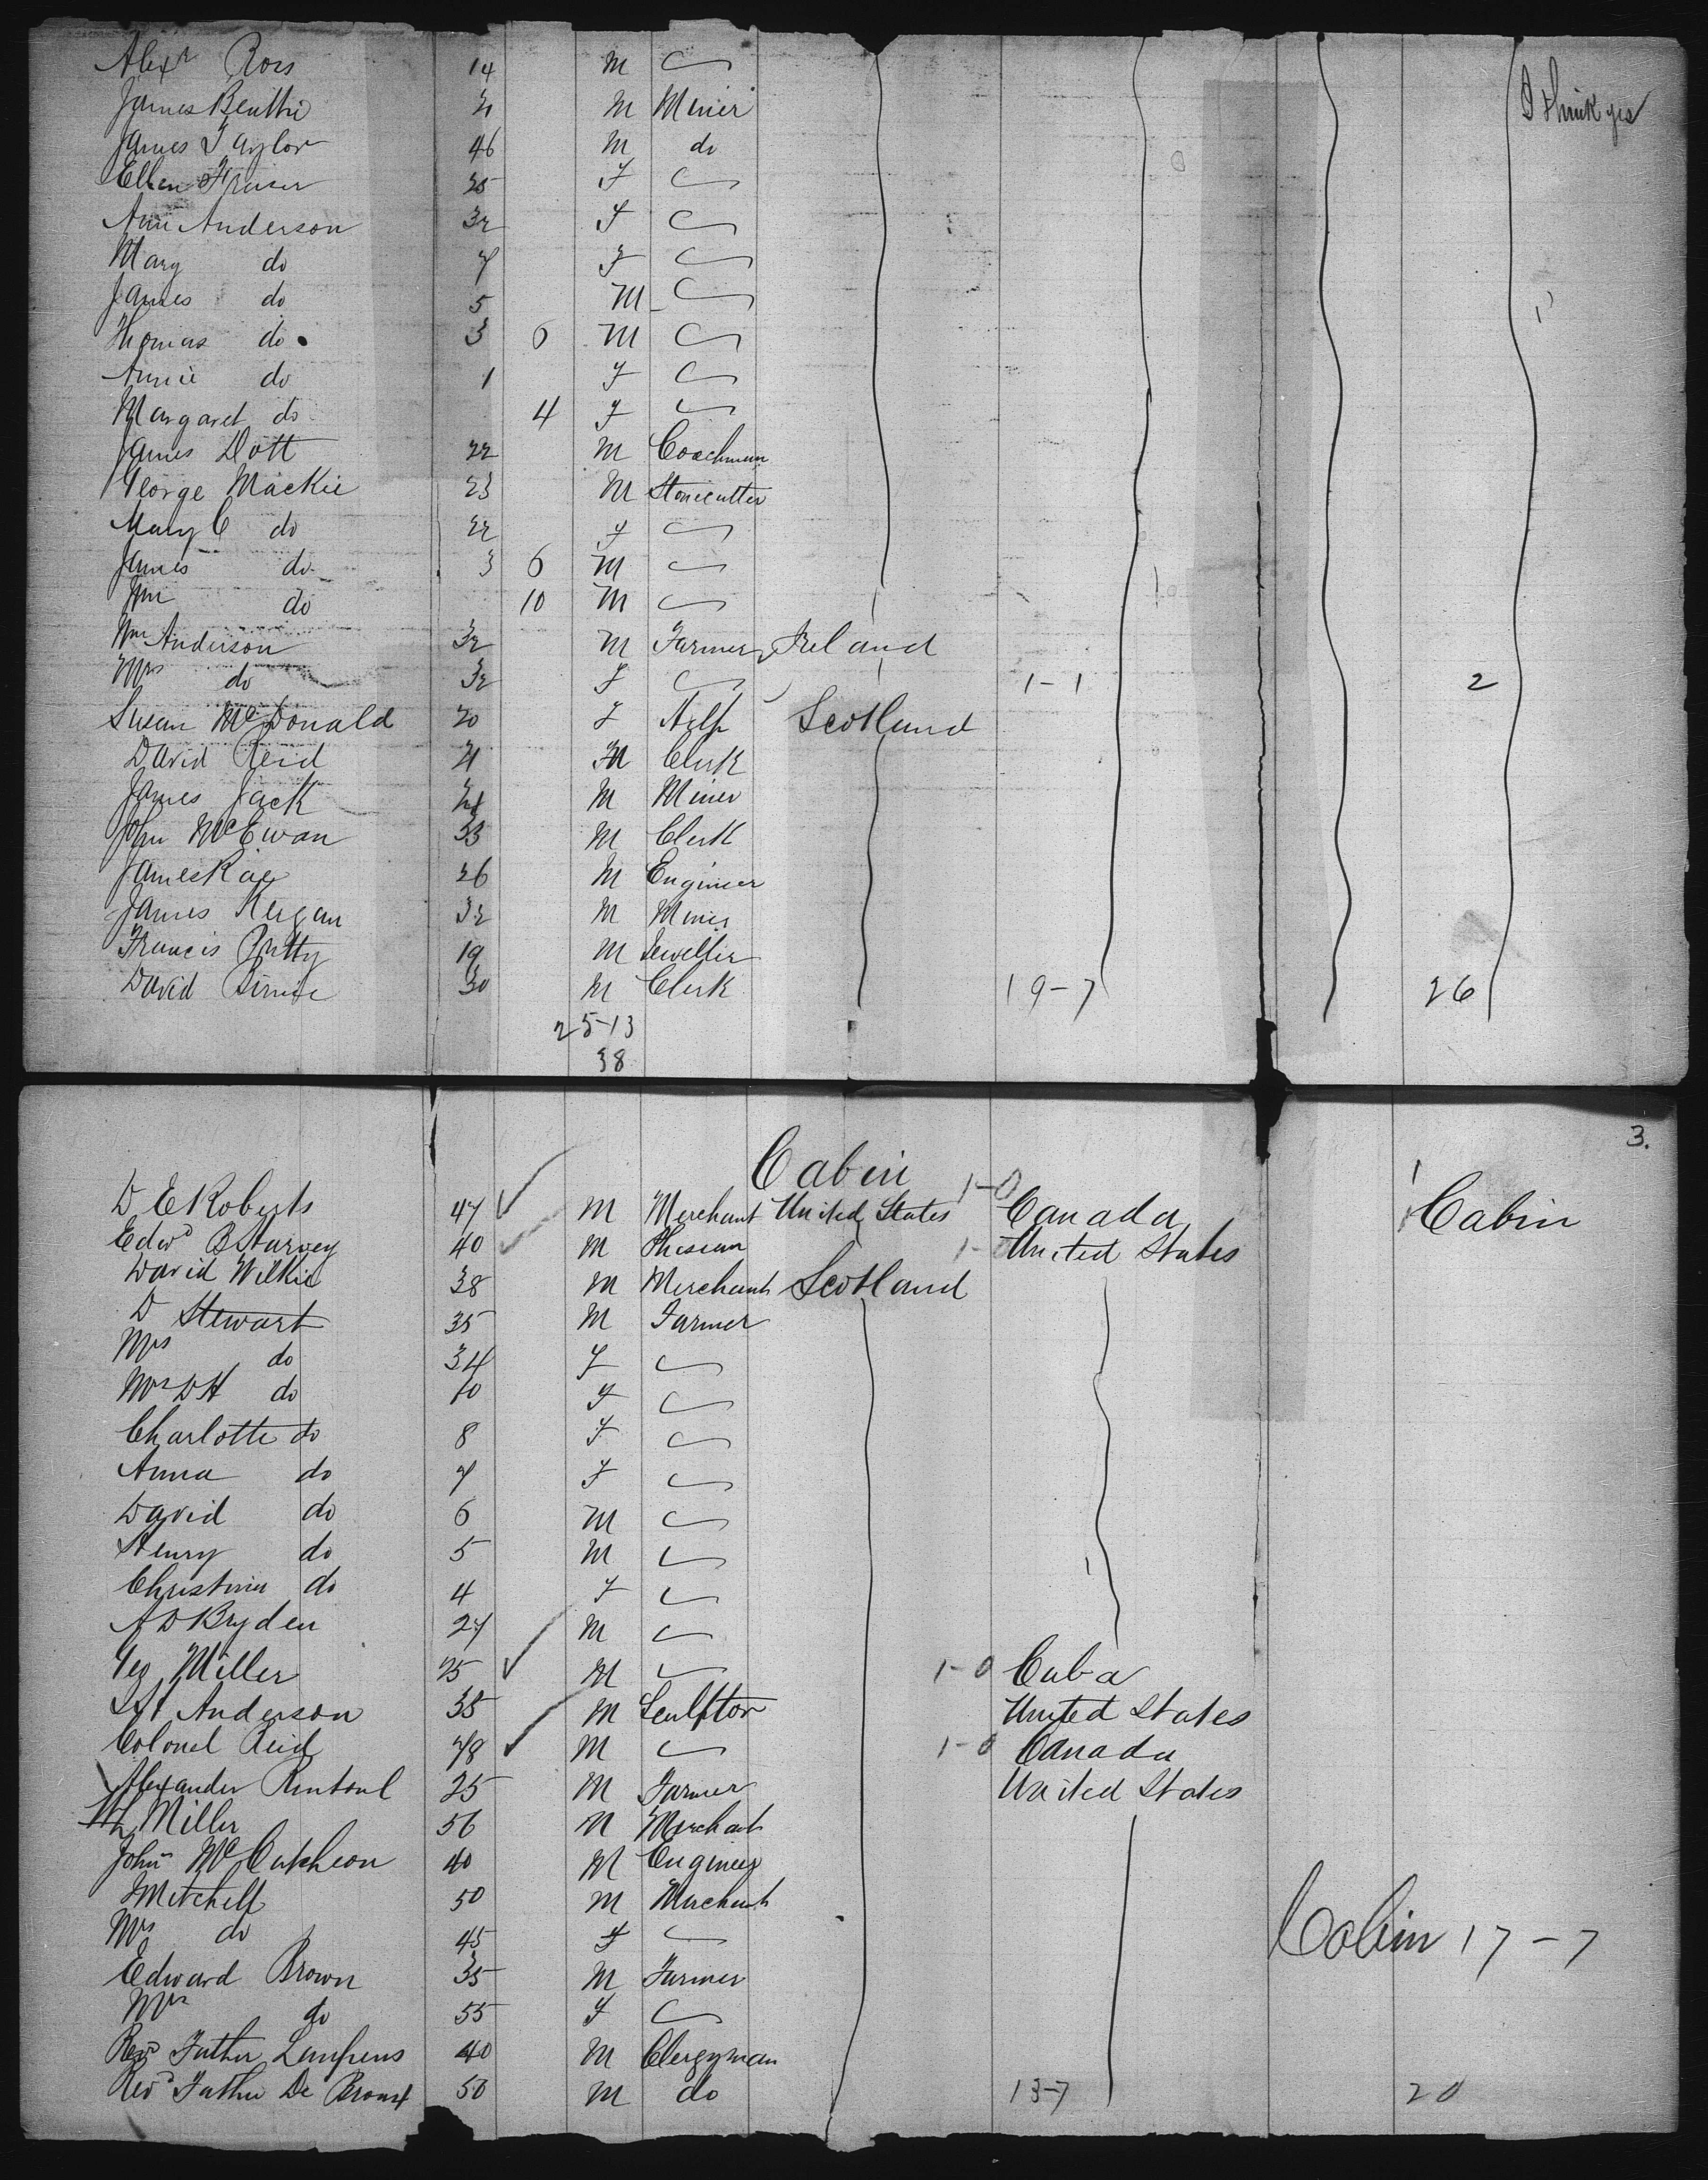 Alexr Ross 14 M
James Beattie 21 M Miner I think yes
James Taylor 46 M do
Ellen Fraser 25 F
Ann Anderson 32 F
Mary do 7 F
James do 5 M
Thomas do 3 6 M
Annie do 1 F
Margaret do 4 F
James Dott 22 M Coachman
George Mackie 23 M Stonecutter
Mary C do 22 F
James do 3 6 M
Jm do 10 M
Wm Anderson 32 M Farmer Ireland
Mrs do 32 F 1-1 2
Susan McDonald 20 F Scotland
David Reid 21 M Clerk
James Jack M Miner
John McEwan 33 M Clerk
James Rae 26 M Engineer
James Keegan 32 M Miner
Francis 19 M Jeweller
David Birnie 30 M Clerk 19-7 26
25-13
38
3.
Cabin
D E Roberts 47 M Merchant United States 1-0 Canada Cabin
Edwd B Harvey 40 M Phisian 1-0 United States
David Wilkie 38 M Merchant Scotland
D Stewart 35 M Farmer
Mrs do 34 F
do 10 F
Charlotte do 8 F
Anna do 7 F
David do 6 M
Henry do 5 M
Christina do 4 F
A D Bryden 27 M
Geo Miller 25 M 1-0 Cuba
Anderson 35 M Sculptor United States
Colonel Reid 48 M 1-0 Canada
Alexander Rintoul 25 M Farmer United States
Miller 56 M Merchant
John McCutcheon 40 M Engineer
Mitchell 50 M Merchant
Mrs do 45 F Cabin 17-7
Edward Brown 35 M Farmer
Mrs do 55 F
Revd Father 40 M Clergyman
Revd Father De 50 M do 13-7 20